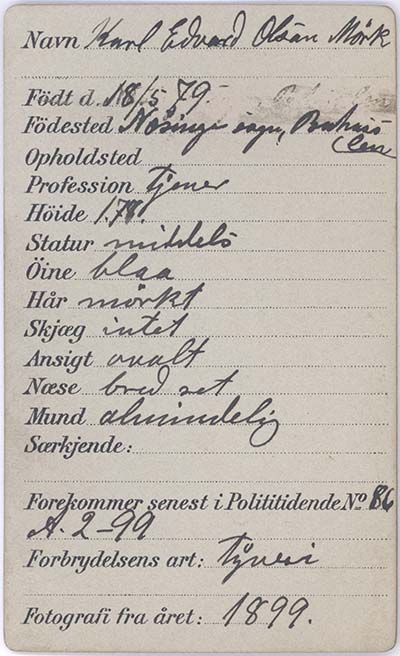 Navn Karl Edvard Olsan Mörk
Födt d. 18/5 79.
Födested Näsinge sogn, Bahus
len
Opholdsted
Profession tjener
Höide 1.78.
Statur middels
Öine blaa
Hår mörkt
Skjæg intet
Ansigt ovalt
Næse bred ret
Mund almindelig
Særkjende:
Forekommer senest i Polititidende No 86
A. 2-99
Forbrydelsens art: tyveri
Fotografi fra året: 1899.